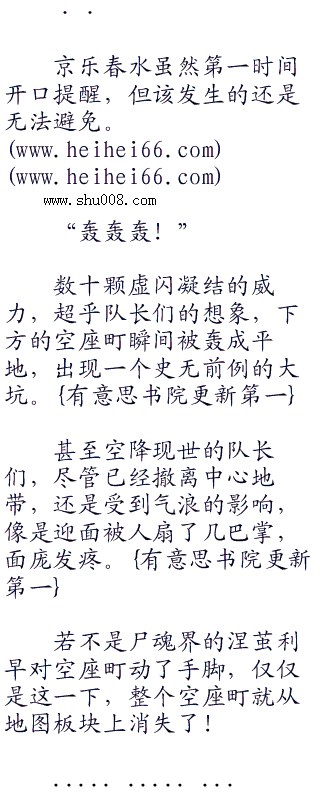 . .
京乐春水虽然第一时间
开口提醒，但该发生的还是
无法避免。
(www.heihei66.com)
(www.heihei66.com)
www.shu008.com
“轰轰轰！”
数十颗虚闪凝结的威
力，超乎队长们的想象，下
方的空座町瞬间被轰成平
地，出现一个史无前例的大
坑。{有意思书院更新第一}
甚至空降现世的队长
们，尽管已经撤离中心地
带，还是受到气浪的影响，
像是迎面被人扇了几巴掌，
面庞发疼。{有意思书院更新
第一}
若不是尸魂界的涅茧利
早对空座町动了手脚，仅仅
是这一下，整个空座町就从
地图板块上消失了！
..... ..... ...